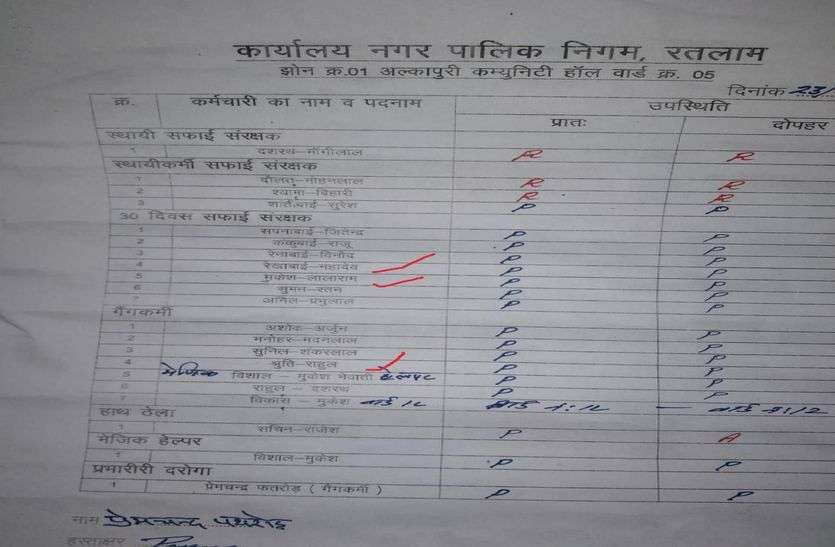 कार्यालय नगर पालिक निगम, रतलाम
झोन क्र.01 अल्कापुरी कम्युनिटी हॉल वार्ड क्र. 05
दिनांक 23/
क्र. कर्मचारी का नाम व पदनाम उपस्थिति
प्रातः दोपहर
स्थायी सफाई संरक्षक
1 दशरथ-मांगीलाल R R
स्थायीकर्मी सफाई संरक्षक
1 दौलत-मोहनलाल R R
2 श्यामा-बिहारी R R
3 शांतिबाई-सुरेश P P
30 दिवस सफाई संरक्षक
1 सपनाबाई-जितेन्द्र P P
2 ककुबाई-राजू P P
3 रेनाबाई-विनोद P P
4 रेखाबाई-महादेव P P
5 मुकेश-लालाराम P P
6 सुमन-रतन P P
7 अनिल-प्रभुलाल P P
गैंगकर्मी
1 अशोक-अर्जुन P P
2 मनोहर-मदनलाल P P
3 सुनिल-शंकरलाल P P
4 श्रुति-राहुल P P
5 मेजिक विशाल - मुकेश मेवाती हेल्पर P P
6 राहुल - दशरथ P P
7 विकास - मुकेश वार्ड 12
हाथ ठेला
1 सचिन-राजेश P A
मेजिक हेल्पर
1 विशाल-मुकेश P P
प्रभारीरी दरोगा
1 प्रेमचन्द फतरोड़ ( गैंगकर्मी ) P P
नाम प्रेमचन्द
हस्ताक्षर